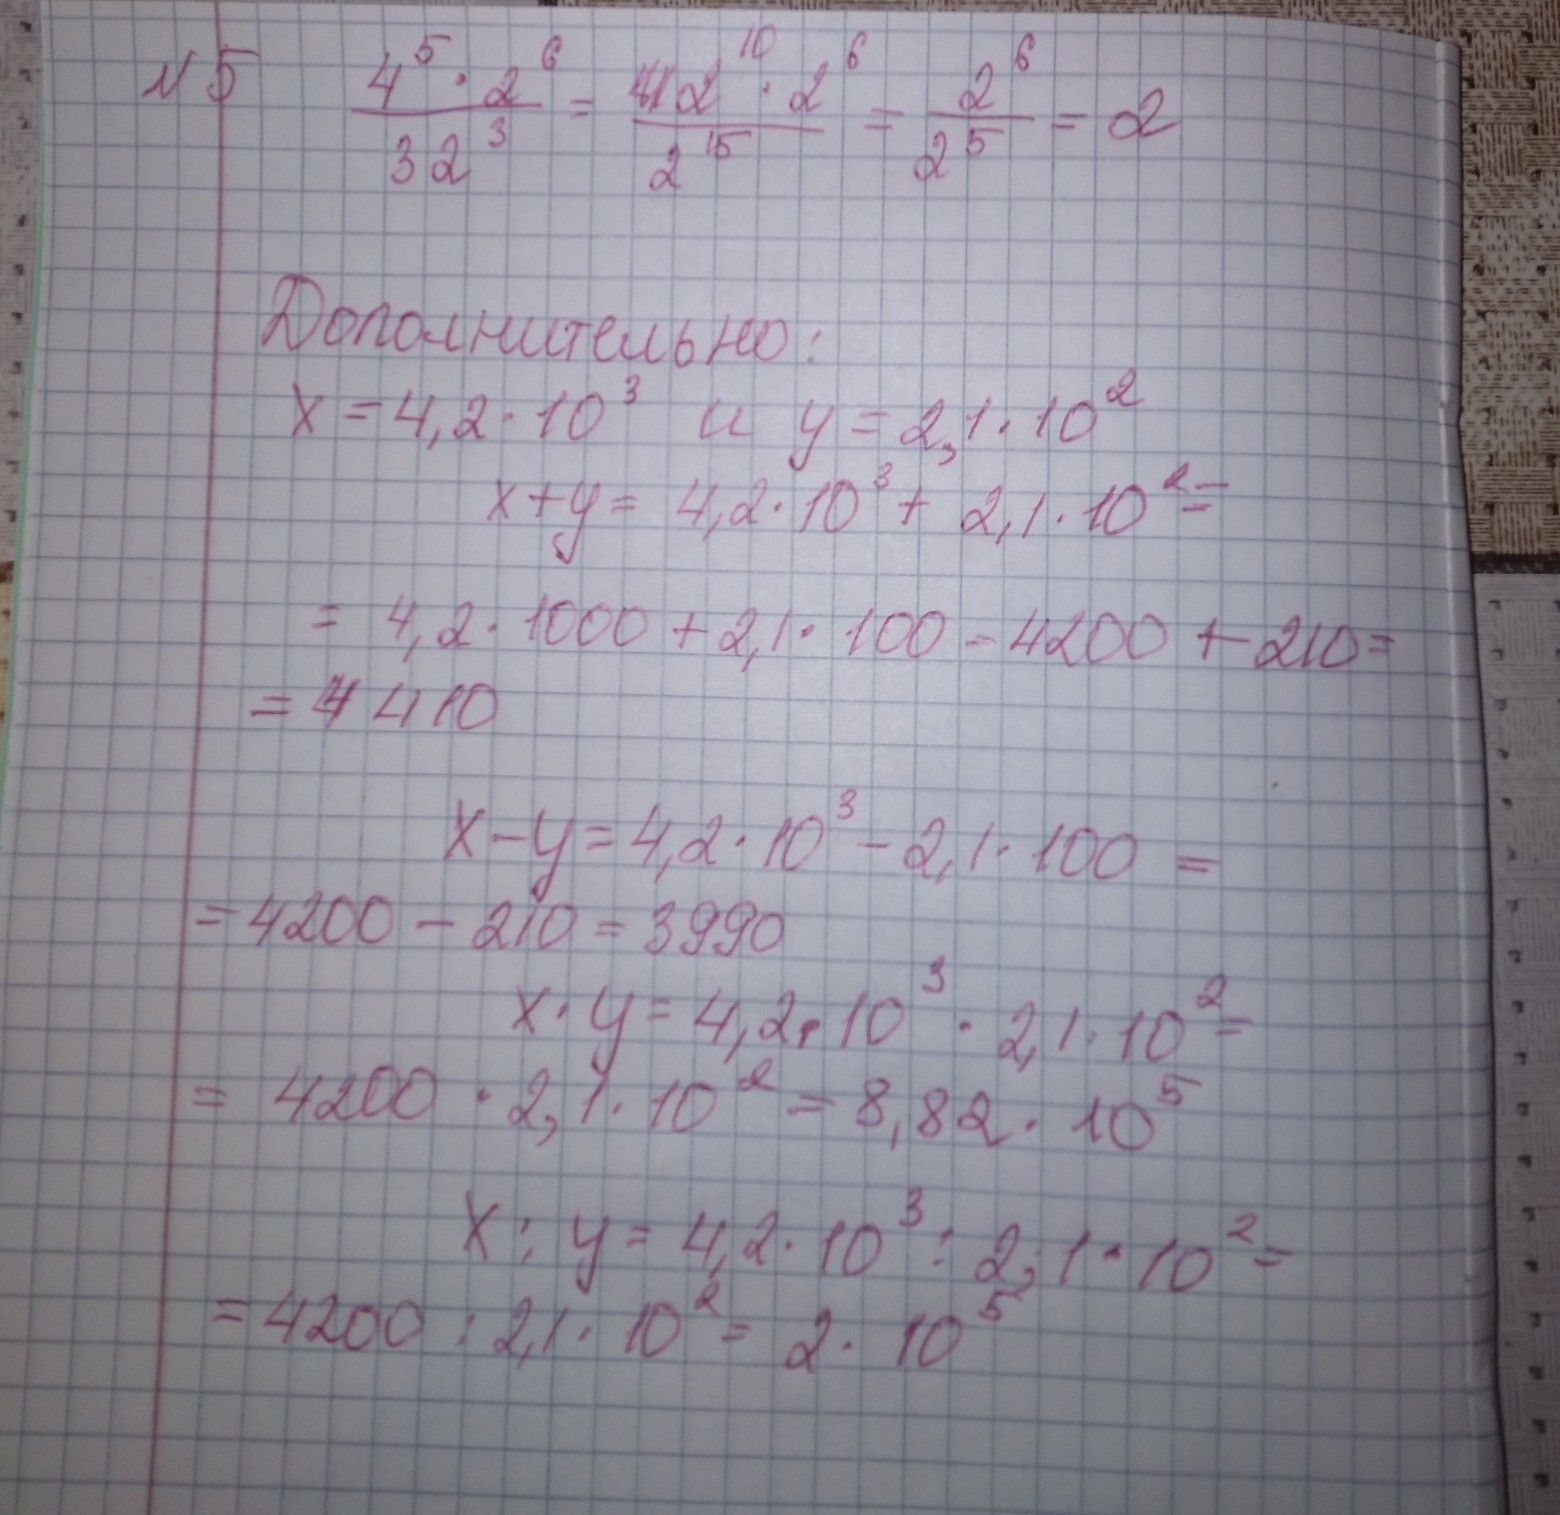 №5 4⁵ · 2⁶ / 32³ = 2¹⁰ · 2⁶ / 2¹⁵ = 2⁶ / 2⁵ = 2
Дополнительно:
x = 4,2 · 10³ и y = 2,1 · 10²
x + y = 4,2 · 10³ + 2,1 · 10² =
= 4,2 · 1000 + 2,1 · 100 = 4200 + 210 =
= 4410
x - y = 4,2 · 10³ - 2,1 · 100 =
= 4200 - 210 = 3990
x · y = 4,2 · 10³ · 2,1 · 10² =
= 4200 · 2,1 · 10² = 8,82 · 10⁵
x : y = 4,2 · 10³ : 2,1 · 10² =
= 4200 : 2,1 · 10² = 2 · 10⁵